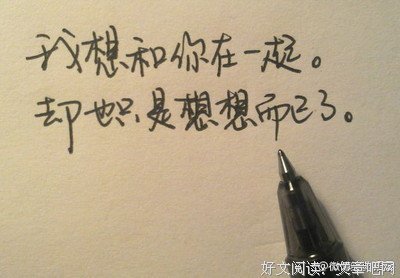 我想和你在一起。
却也只是想想而已了。
好文阅读：文章吧网